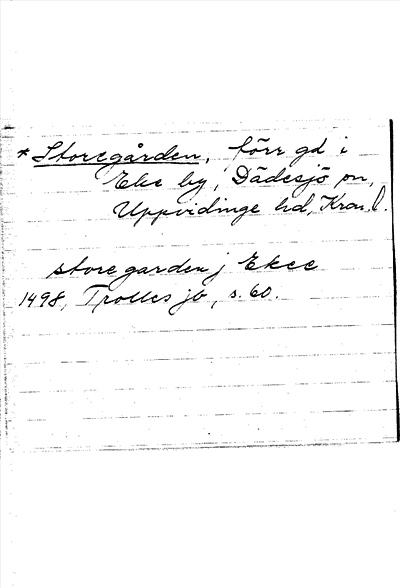 * Storegården, förr gd i
Eke by, Dädesjö sn,
Uppvidinge hd, Kron. l.
storegarden j Ekee
1498, Trolles jb, s. 60.